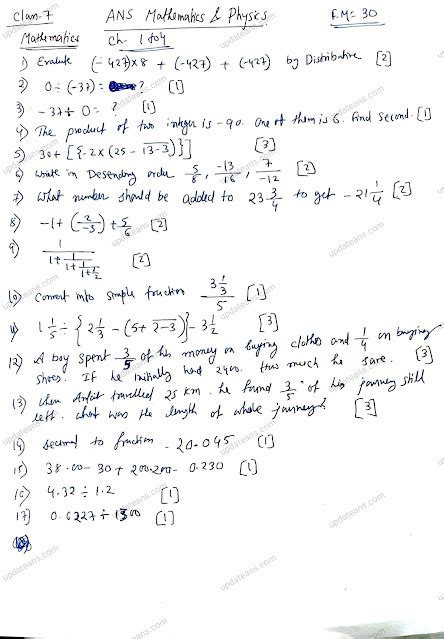 Class-7 ANS Mathematics & Physics F.M= 30
Mathematics Ch- 1 to 4
1) Evalute (-427)×8 + (-427) + (-427) by Distributive [2]
2) 0 ÷ (-37) = ? [1]
3) -37 ÷ 0 = ? [1]
4) The product of two integer is -90. One of them is 6. Find second. [1]
5) 30+ [{-2×(25 - 1̅3̅-̅3̅)}] [3]
6) write in Desending order 5/8, -13/16, 7/-12 [2]
7) What number should be added to 23 3/4 to get -21 1/4 [2]
8) -1 + (2/-3) + 5/6 [2]
9) 1/(1+1/(1+1/(1+1/2))) [2]
10) Convert into simple fraction (3 1/3)/5 [1]
11) 1 1/5 ÷ {2 1/3 - (5+ 2̅-̅3̅)} - 3 1/2 [3]
12) A boy spent 3/5 of his money on buying clothes and 1/4 on buying
shoes. If he initially had 2400. How much he save. [3]
13) When Ankit travelled 25 km. he found 3/5 of his journey still
left. What was the length of whole journey? [3]
14) decimal to fraction - 20.045 [1]
15) 38.00 - 30 + 200.200 - 0.230 [1]
16) 4.32 ÷ 1.2 [1]
17) 0.6227 ÷ 1300 [1]
updateans.com